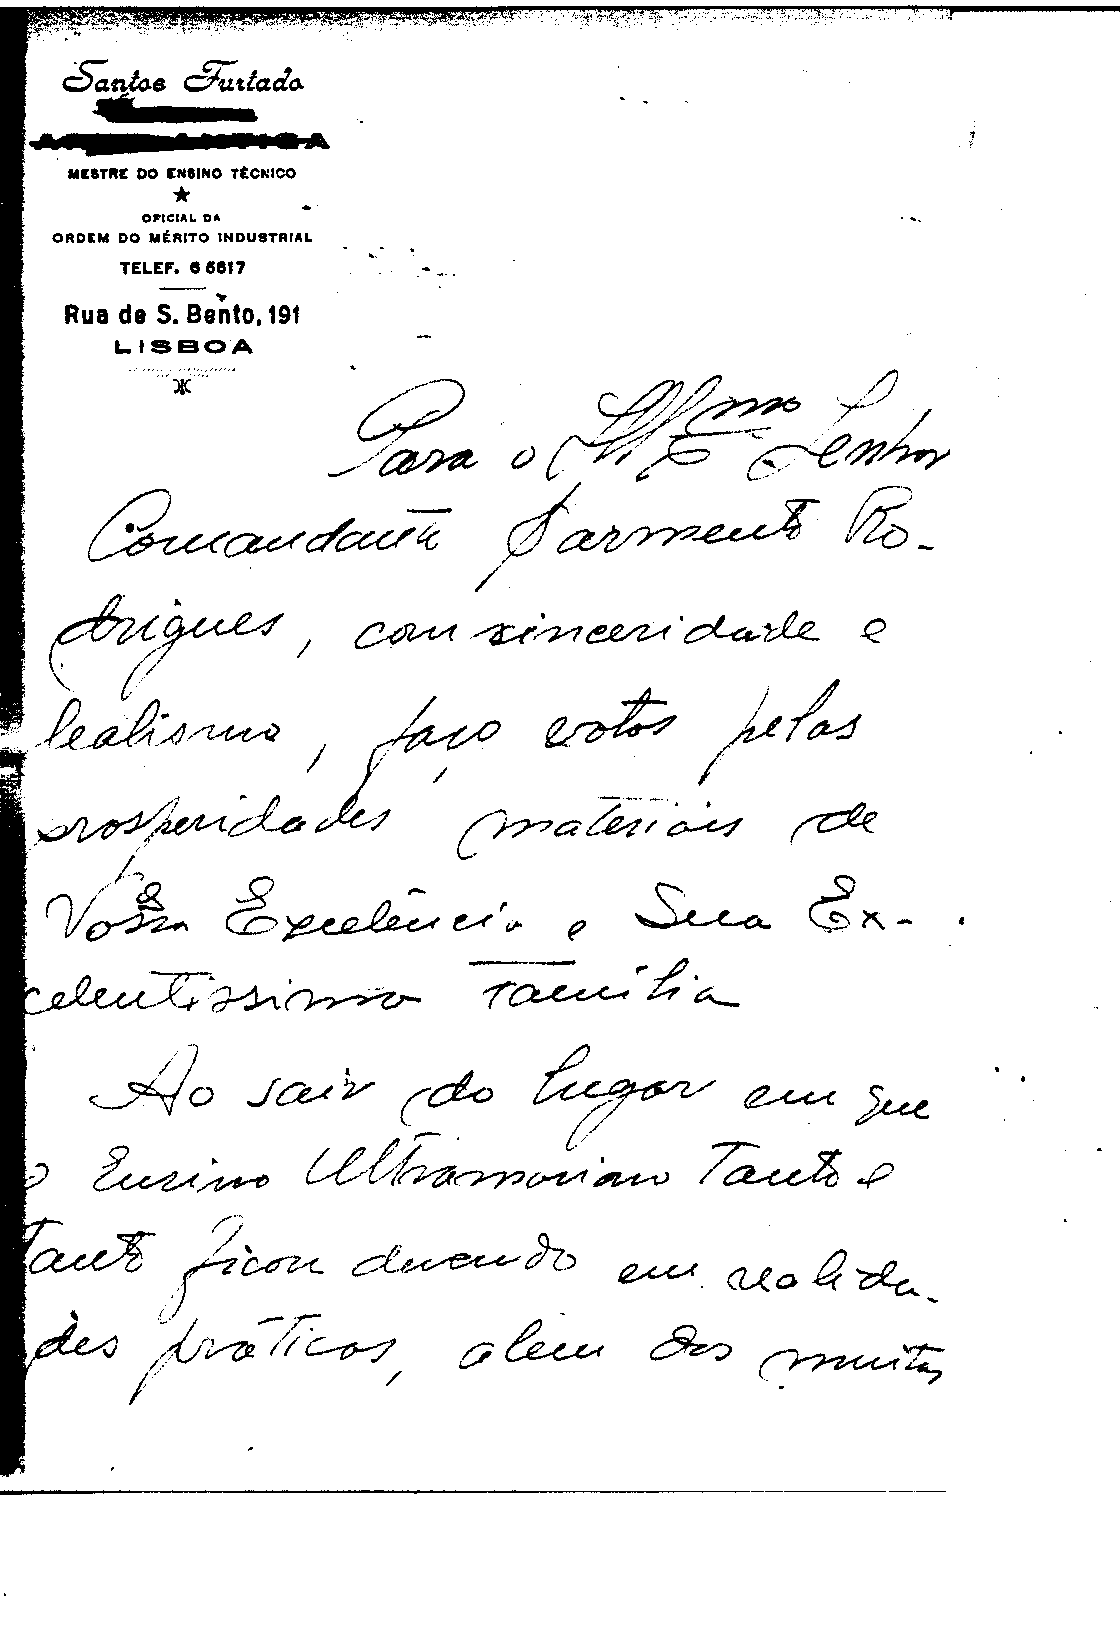 Santos Furtado
MESTRE DO ENSINO TÉCNICO
OFICIAL DA
ORDEM DO MÉRITO INDUSTRIAL
TELEF. 6 6617
Rua de S. Bento, 191
LISBOA
Para o Senhor
Comandante Sarmento Ro-
drigues, com sinceridade e
lealismo, faço votos pelas
prosperidades materiais de
Vossa Excelência e Sua Ex-
celentissima Família
Ao sair do lugar em que
o Ensino Ultramarino Tanto e
Tanto ficou devendo em realida-
des práticas, alem dos muitos